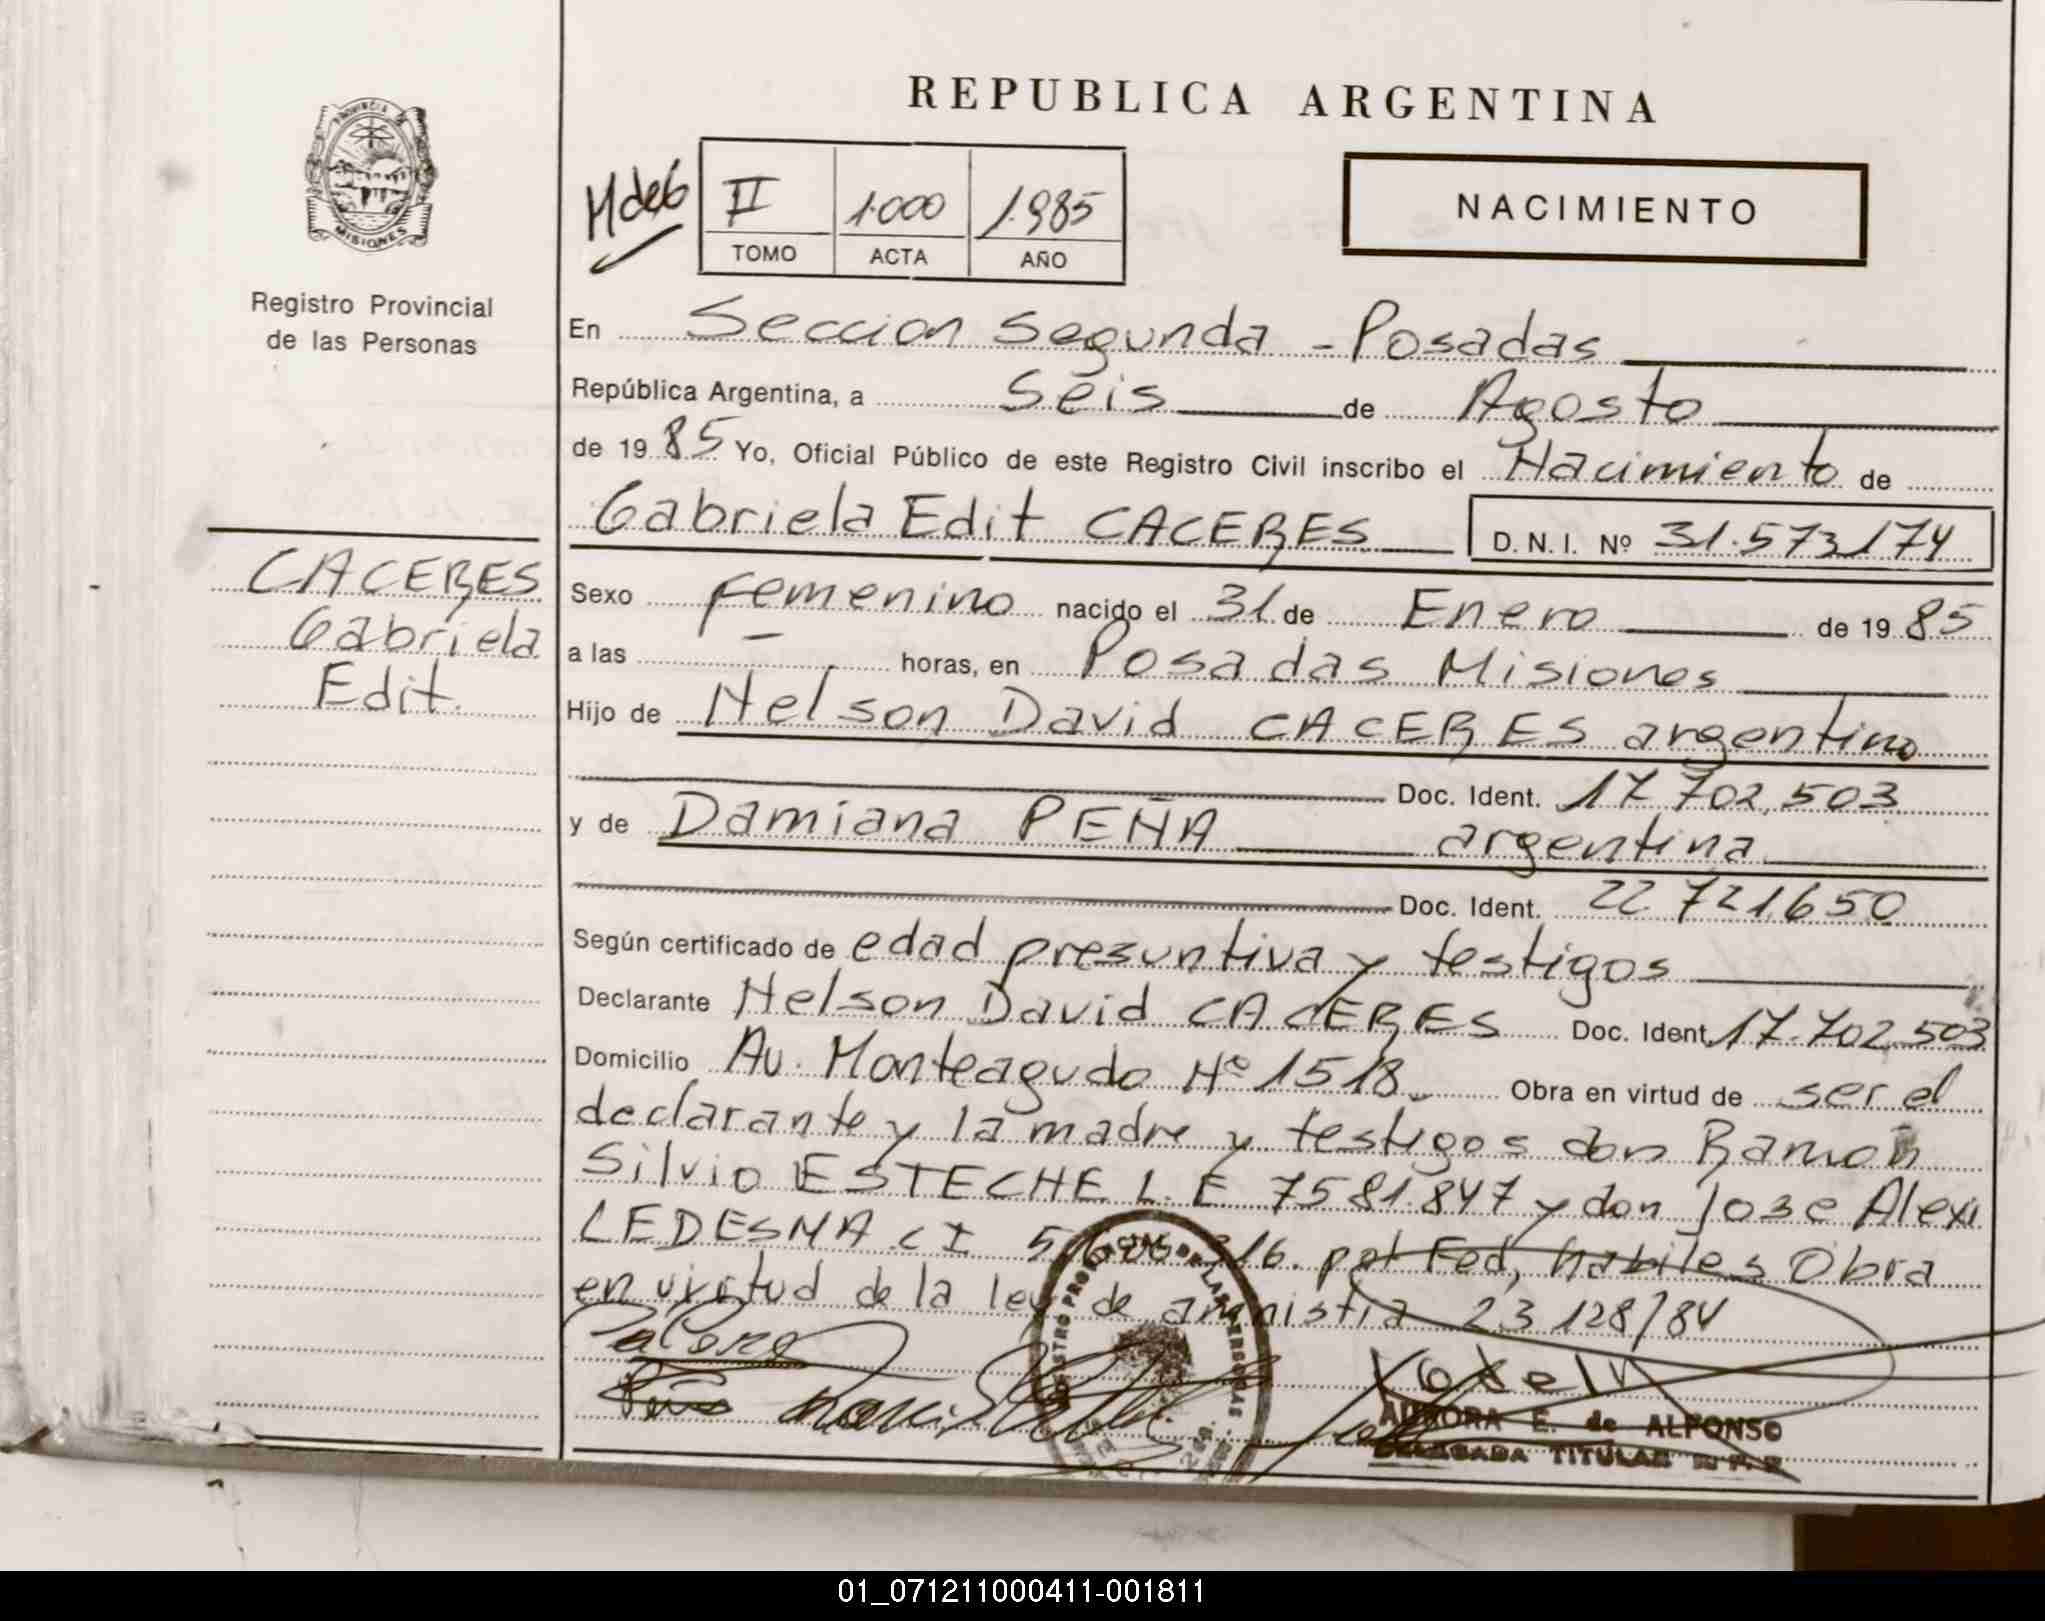 REPUBLICA ARGENTINA
PROVINCIA DE
MISIONES
Registro Provincial
de las Personas
II 1.000 1.985
TOMO ACTA AÑO
NACIMIENTO
En Seccion Segunda - Posadas
República Argentina, a Seis de Agosto
de 19 85 Yo, Oficial Público de este Registro Civil inscribo el Nacimiento de
Gabriela Edit CACERES D. N. I. Nº 31.573174
CACERES
Gabriela
Edit.
Sexo femenino nacido el 31 de Enero de 19 85
a las — horas, en Posadas Misiones
Hijo de Nelson David CACERES argentino
Doc. Ident. 17 702.503
y de Damiana PEÑA argentina
Doc. Ident. 22.721.650
Según certificado de edad presuntiva y testigos
Declarante Nelson David CACERES Doc. Ident. 17.702.503
Domicilio Av. Monteagudo Nº 1518. Obra en virtud de ser el
declarante y la madre y testigos don Ramón
Silvio ESTECHE L.E 7581.847 y don Jose Alexi
LEDESMA C I 316. pol Fed, habiles Obra
en virtud de la ley de amnistia 23 128/84
REGISTRO PROVINCIAL DE LAS PERSONAS
AURORA E. de ALFONSO
DELEGADA TITULAR R. P. P.
01_071211000411-001811